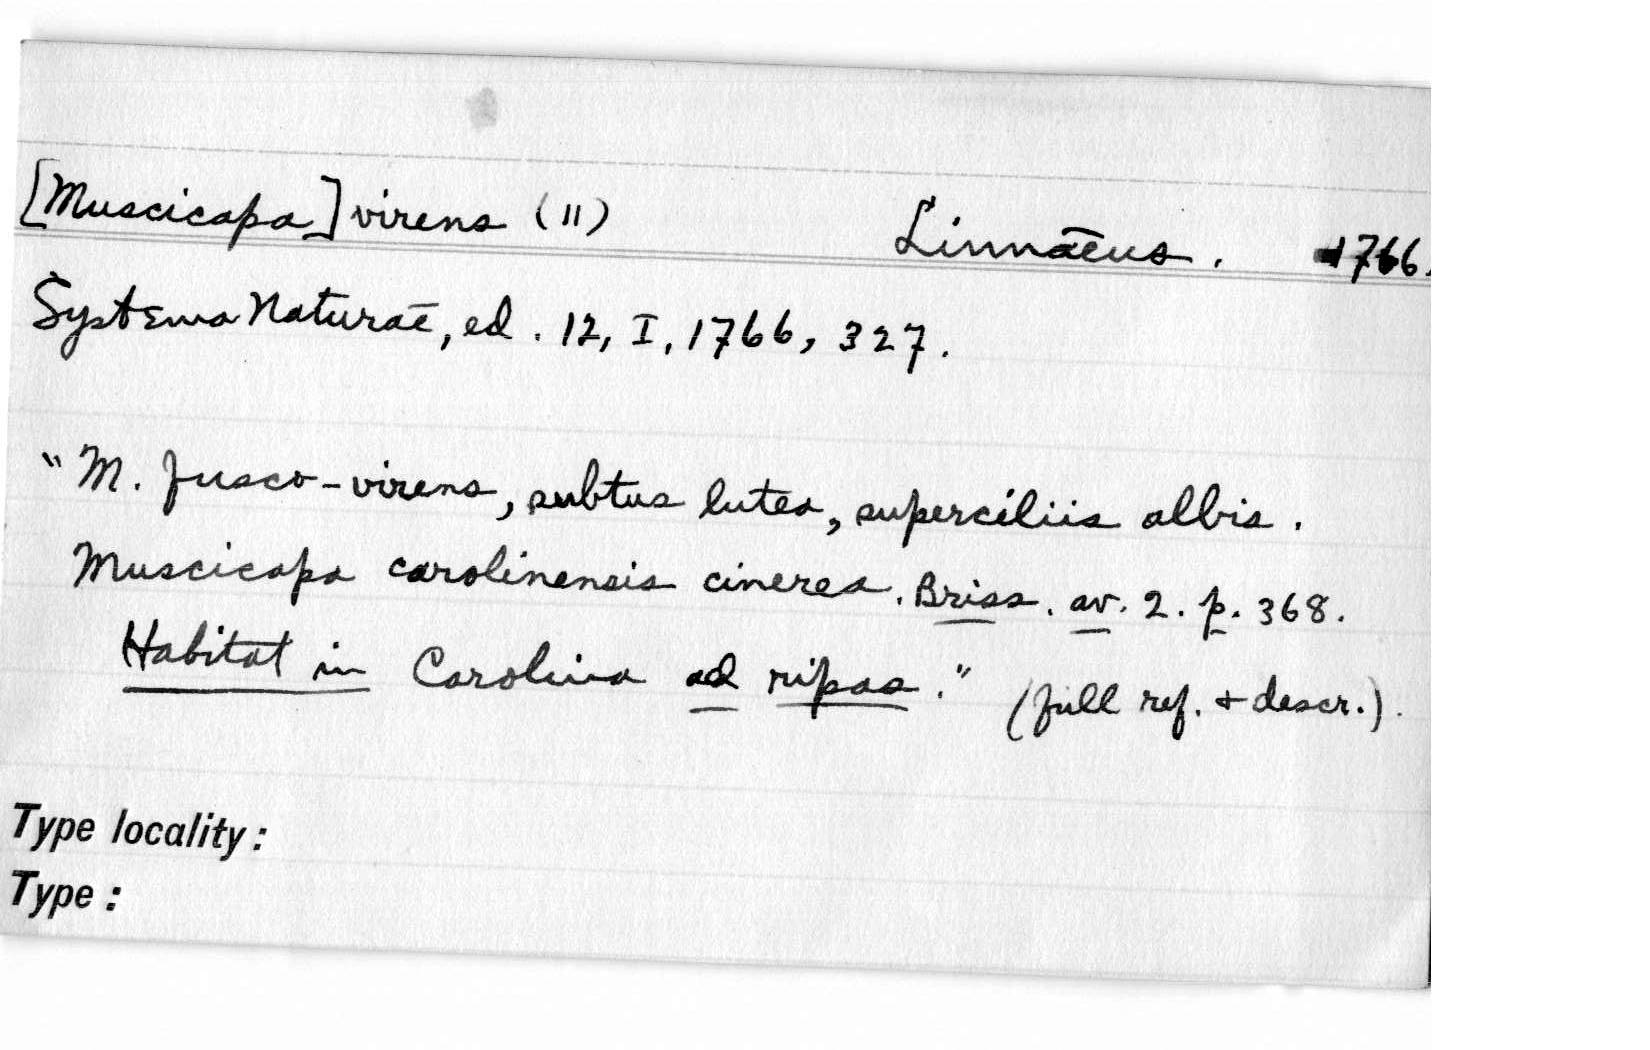 [Muscicapa] virens (11) Linnaeus. 1766.
Systema Naturae, ed. 12, I, 1766, 327.
"M. fusco-virens, subtus lutea, superciliis albis.
Muscicapa carolinensis cinerea. Briss. av. 2. p. 368.
Habitat in Carolina ad ripas." (full ref. + descr.).
Type locality:
Type: